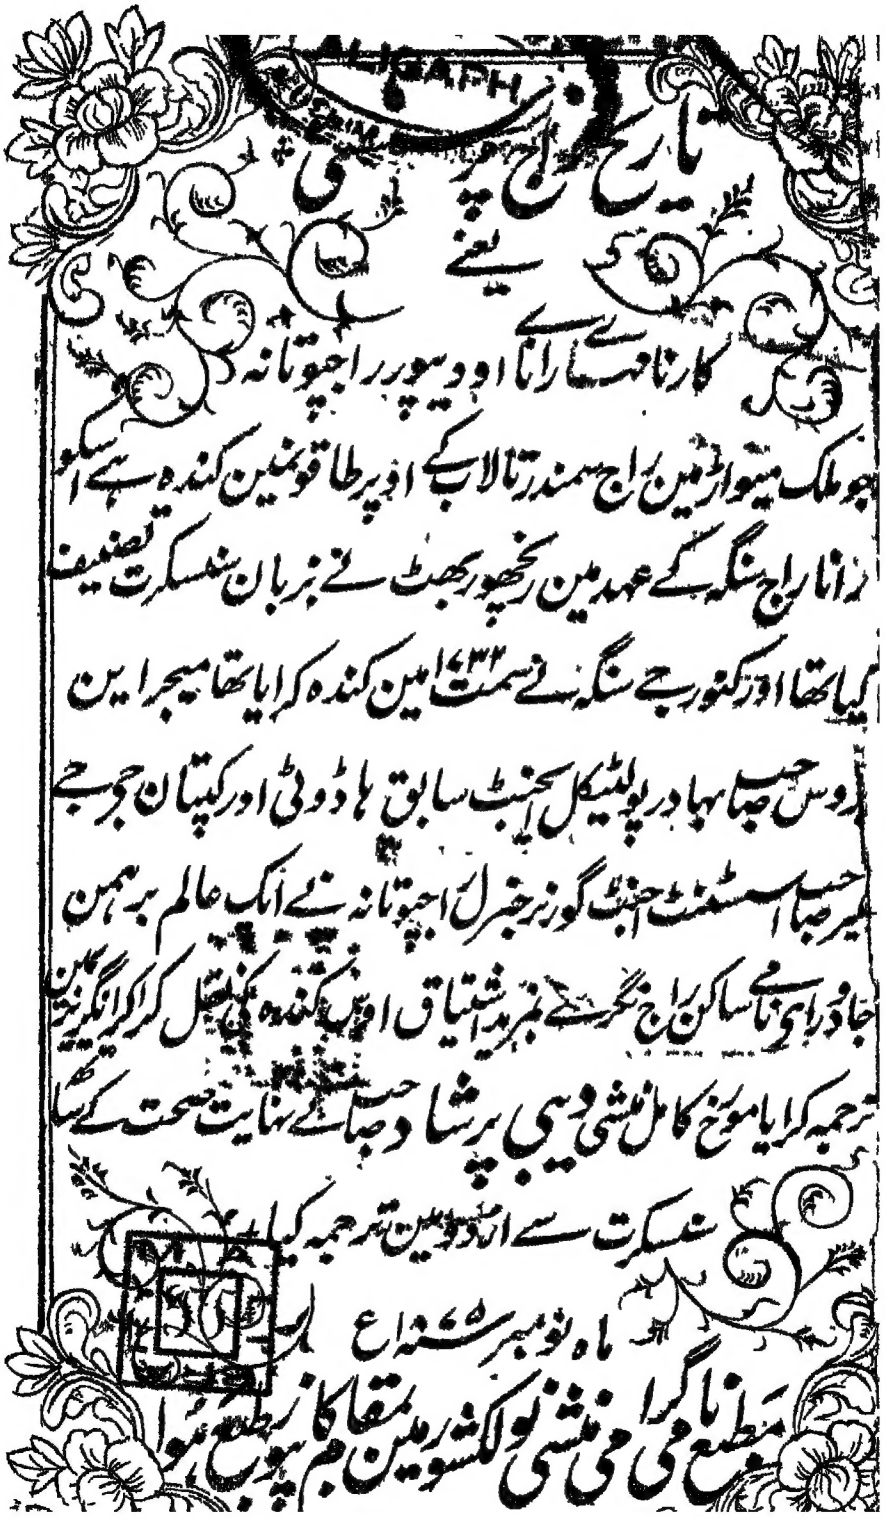 ALIGARH
تاریخ راج پرشستی
یعنے
کارنامہ مہارانا اودیپور راجپوتانہ
جو ملک میواڑ مین راج سمندر تالاب کے اوپر طاقونمین کندہ ہے اسکو
رانا راج سنگہ کے عہد مین رنچھور بھٹ نے بزبان سنسکرت تصنیف
کیا تھا اور کنور جے سنگہ نے سمت ۱۷۳۲ مین کندہ کرایا تھا میجر این
روس صاحب بہادر پولٹیکل ایجنٹ سابق ہاڈوٹی اور کپتان جو جے
بلیر صاحب اسسٹنٹ اجنٹ گورنر جنرل راجپوتانہ نے ایک عالم برہمن
جادو رای نامے ساکن راج نگر سے بمزید اشتیاق اوس کندہ کی نقل کرا کر انگریزی مین
ترجمہ کرایا مورخ کامل منشی دیبی پرشاد صاحب نے نہایت صحت کے ساتھ
سنسکرت سے اردو مین ترجمہ کیا
ماہ نومبر سنہ ۱۸۷۵ع
مطبع نامی گرامی منشی نولکشور مین بمقام کانپور طبع ہوا